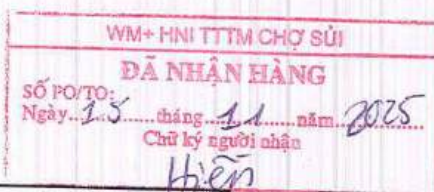 WM+ HNI TTTM CHỢ SỦI
ĐÃ NHẬN HÀNG
SỐ PO/TO:
Ngày 15 tháng 11 năm 2025
Chữ ký người nhận
Hiền